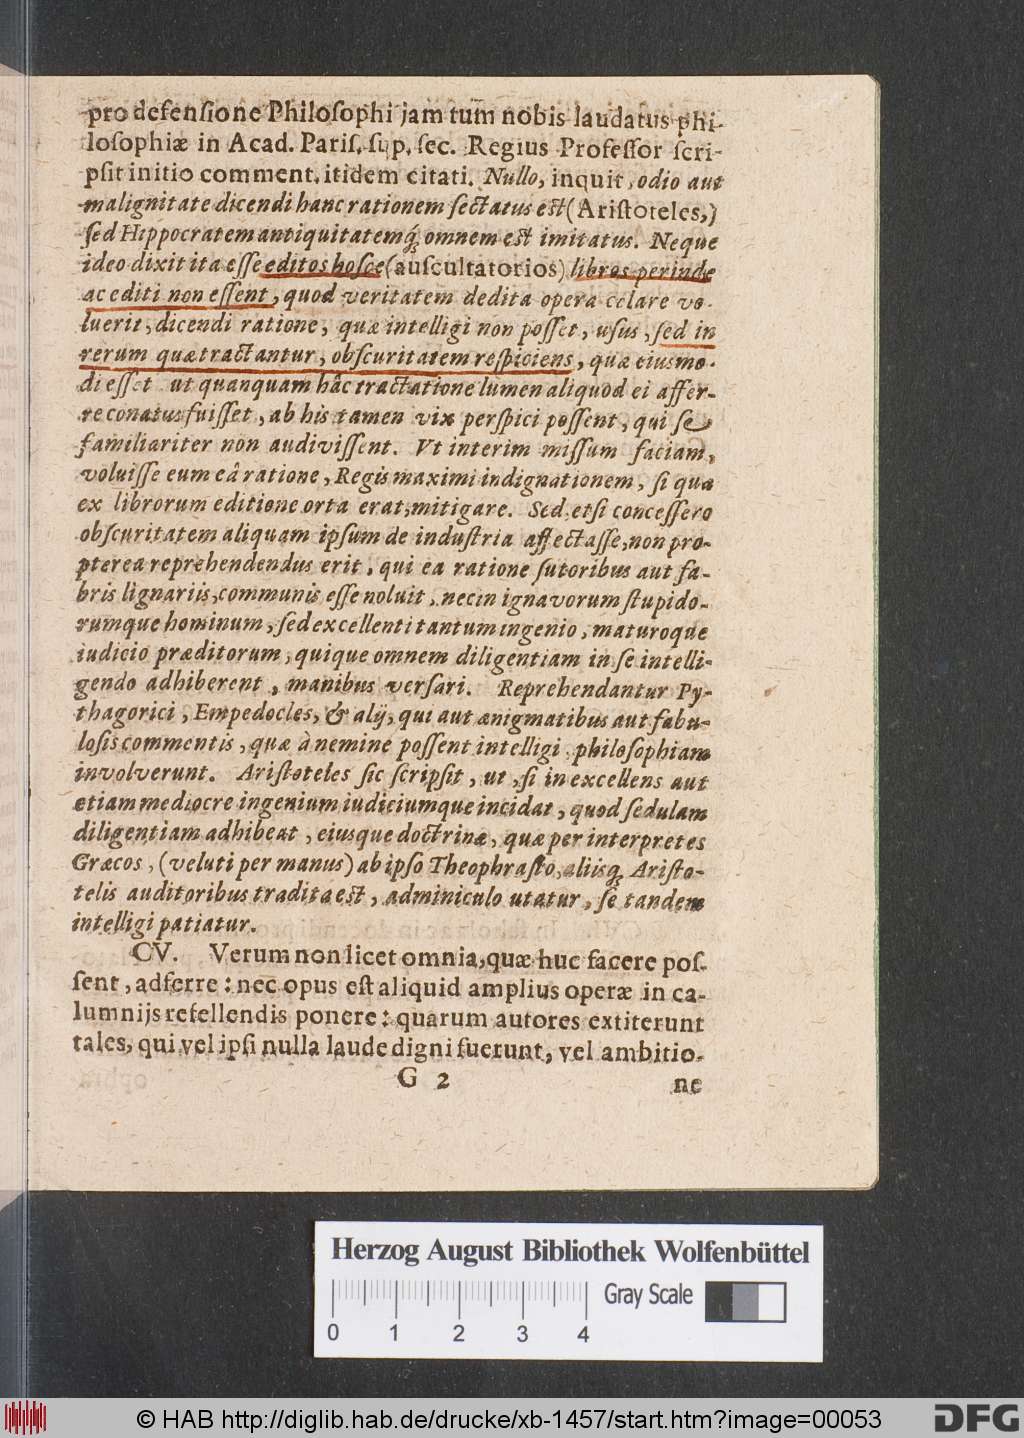 pro defenſione Philoſophi jam tum nobis laudatus phi-
loſophiæ in Acad. Pariſ. ſup. ſec. Regius Profeſſor ſcri-
pſit initio comment. itidem citati. Nullo, inquit, odio aut
malignitate dicendi hanc rationem ſectatus eſt (Ariſtoteles,)
ſed Hippocratem antiquitatemq́; omnem eſt imitatus. Neque
ideo dixit ita eſſe editos hoſce (auſcultatorios) libros perinde
ac editi non eſſent, quod veritatem dedita opera celare vo-
luerit, dicendi ratione, quæ intelligi non poſſet, uſus, ſed in
rerum quæ tractantur, obſcuritatem reſpiciens, quæ eiusmo-
di eſſet ut quanquam hâc tractatione lumen aliquod ei affer-
re conatus fuiſſet, ab his tamen vix perſpici poſſent, qui ſe
familiariter non audiviſſent. Vt interim miſſum faciam,
voluiſſe eum eâ ratione, Regis maximi indignationem, ſi qua
ex librorum editione orta erat, mitigare. Sed, etſi conceſſero
obſcuritatem aliquam ipſum de induſtria affectaſſe, non pro-
pterea reprehendendus erit, qui ea ratione ſutoribus aut fa-
bris lignariis, communis eſſe noluit, nec in ignavorum ſtupido-
rumque hominum, ſed excellenti tantum ingenio, maturoque
iudicio præditorum, quique omnem diligentiam in ſe intelli-
gendo adhiberent, manibus verſari. Reprehendantur Py-
thagorici, Empedocles, & alij, qui aut ænigmatibus aut fabu-
loſis commentis, quæ à nemine poſſent intelligi philoſophiam
involverunt. Ariſtoteles ſic ſcripſit, ut, ſi in excellens aut
etiam mediocre ingenium iudiciumque incidat, quod ſedulam
diligentiam adhibeat, eiusque doctrinæ, quæ per interpretes
Græcos, (veluti per manus) ab ipſo Theophraſto, aliisq́; Ariſto-
telis auditoribus tradita eſt, adminiculo utatur, ſe tandem
intelligi patiatur.
CV. Verum non licet omnia, quæ huc facere poſ-
ſent, adferre: nec opus eſt aliquid amplius operæ in ca-
lumnijs refellendis ponere: quarum autores extiterunt
tales, qui vel ipſi nulla laude digni fuerunt, vel ambitio-
G 2
ne
Herzog August Bibliothek Wolfenbüttel
Gray Scale
0 1 2 3 4
© HAB http://diglib.hab.de/drucke/xb-1457/start.htm?image=00053
DFG